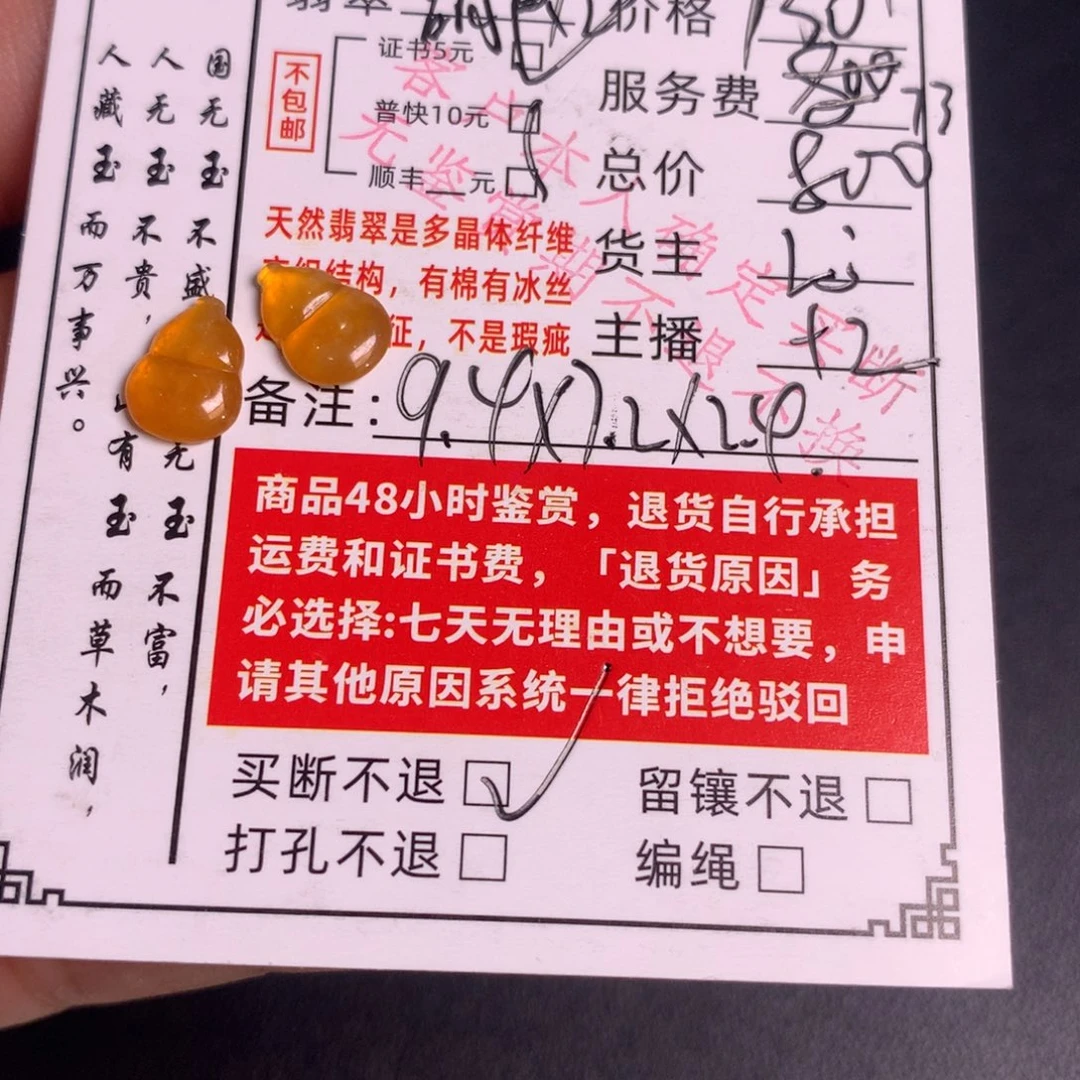 翡翠 x2 价格
不包邮
证书5元
普快10元
顺丰__元
服务费
总价 800
货主
主播
天然翡翠是多晶体纤维
结构，有棉有冰丝
征，不是瑕疵
客户本人确定买断
无鉴赏期不退不换
备注：9.4x7.2x2.4
商品48小时鉴赏，退货自行承担
运费和证书费，「退货原因」务
必选择:七天无理由或不想要，申
请其他原因系统一律拒绝驳回
买断不退 留镶不退
打孔不退 编绳
国无玉不盛
人无玉不贵，
人藏玉而万事兴。
无玉不富，
有玉而草木润，